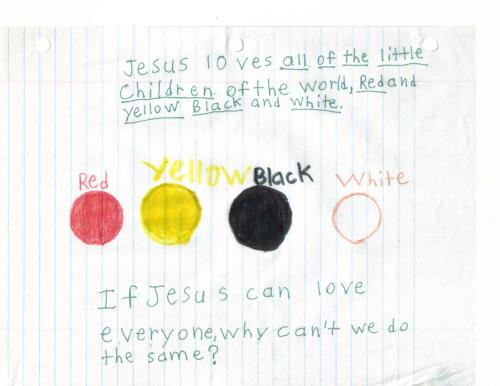 Jesus loves all of the little
Children of the world, Red and
yellow Black and white.
Red Yellow Black White
If Jesus can love
everyone, why can't we do
the same?